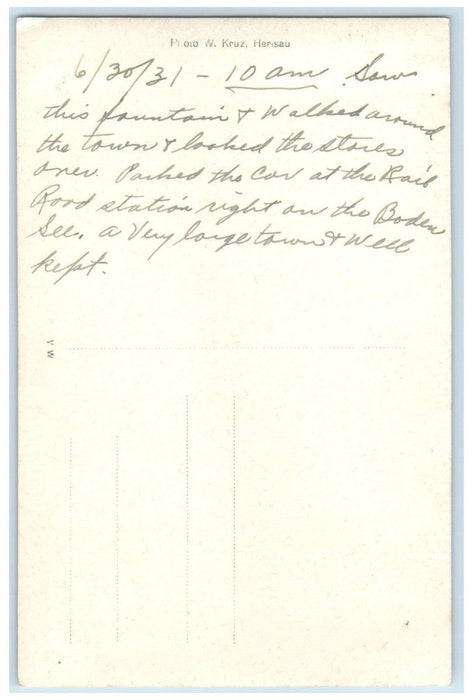 Photo W. Kruz, Herisau
6/30/31 - 10 am Saw
this fountain & Walked around
the town & looked the stores
over. Parked the Car at the Rail
Road station right on the Boden
See. a Very large town & Well
kept.
Y W